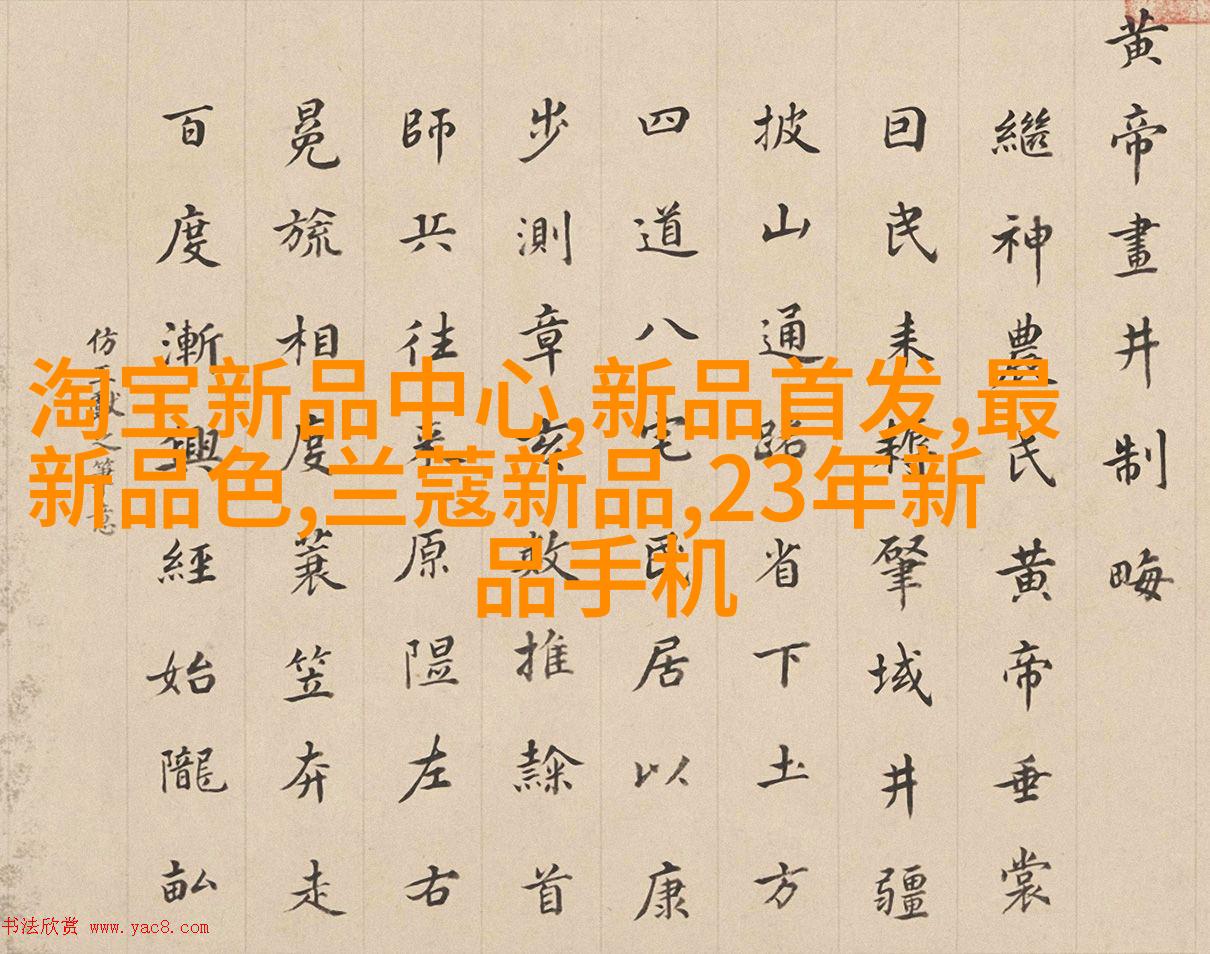 黄帝畫井制畮
繼神農氏黄帝垂裳
囙民耒耨肇域井疆
披山通路省下土方
四道八宅民居以康
步測章亥數推隸首
師兵往来原隰左右
冕旒相度蓑笠奔走
百度漸興經始隴畝
仿王獻之筆意
淘宝新品中心,新品首发,最
新品色,兰蔻新品,23年新
品手机
书法欣赏 www.yac8.com